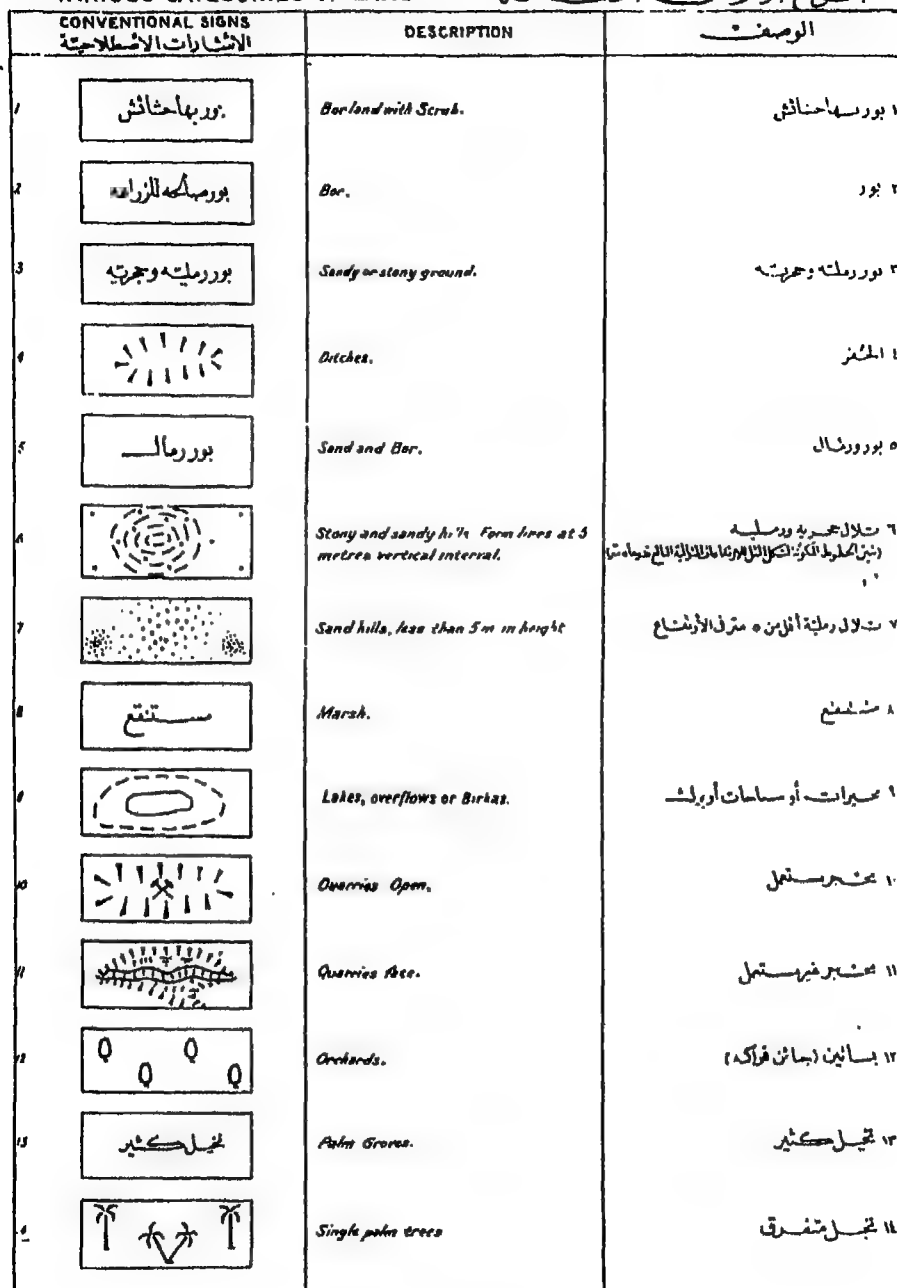 CONVENTIONAL SIGNS
الاشارات الاصطلاحية
DESCRIPTION
الوصف
1 بور بها حشائش Bor land with Scrub. ١ بور بها حشائش
2 بور صالحه Bor. ٢ بور
3 بور رمليه وحجريه Sandy or stony ground. ٣ بور رمليه وحجريه
4 Ditches. ٤ الحفر
5 بور رمال Sand and Bor. ٥ بور ورمال
6 Stony and sandy hills Form lines at 5 ٦ تلال حجريه ورمليه
metres vertical interval.
7 Sand hills, less than 5m in height ٧ تلال رملية أقل من ٥ متر في الأرتفاع
8 مستنقع Marsh. ٨ مستنقع
9 Lakes, overflows or Birkas. ٩ بحيرات أو سياحات أو برك
10 Quarries Open. ١٠ محجر مستعمل
11 Quarries face. ١١ محجر غير مستعمل
12 Orchards. ١٢ بساتين (جنائن فواكه)
13 نخيل كثير Palm Groves. ١٣ نخيل كثير
Single palm trees ١٤ نخيل متفرق